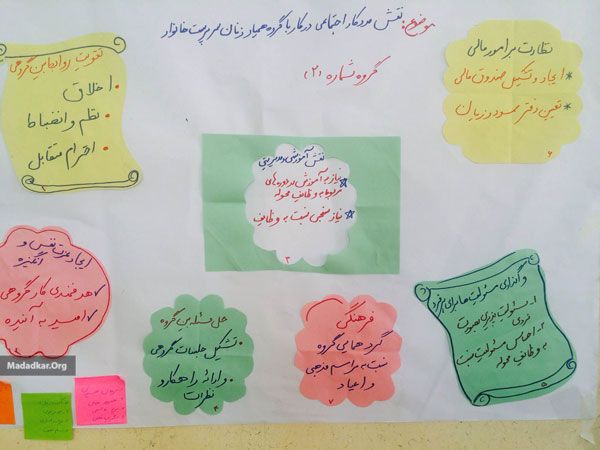 موضوع: نقش مددکار اجتماعی در کار با گروه همیار زنان سرپرست خانوار
گروه شماره (۲)
نظارت بر امور مالی
* ایجاد و تشکیل صندوق مالی
* تعیین دفتر سود و زیان
۶
تقویت روابط بین گروهی
• اخلاق
• نظم و انضباط
• احترام متقابل
۱
نقش آموزشی و مدیریتی
نیاز به آموزش در دوره‌های
مربوط به وظایف محوله
نیاز سنجی نسبت به وظایف
۳
ایجاد عزت نفس و
انگیزه
✓ هدفمندی کار گروهی
✓ امید به آینده
حل مسئله بین گروه
• تشکیل جلسات گروهی
• و ارائه راهکار و
نظرات
۴
فرهنگی
گردهمایی گروه
نسبت به مراسم مذهبی
و اعیاد
۷
واگذاری مسئولیت‌ها برای هر فرد
۱. مسئولیت پذیری بصورت
فردی
۲. احساس مسئولیت نسبت
به وظایف محوله
۵
Madadkar.Org